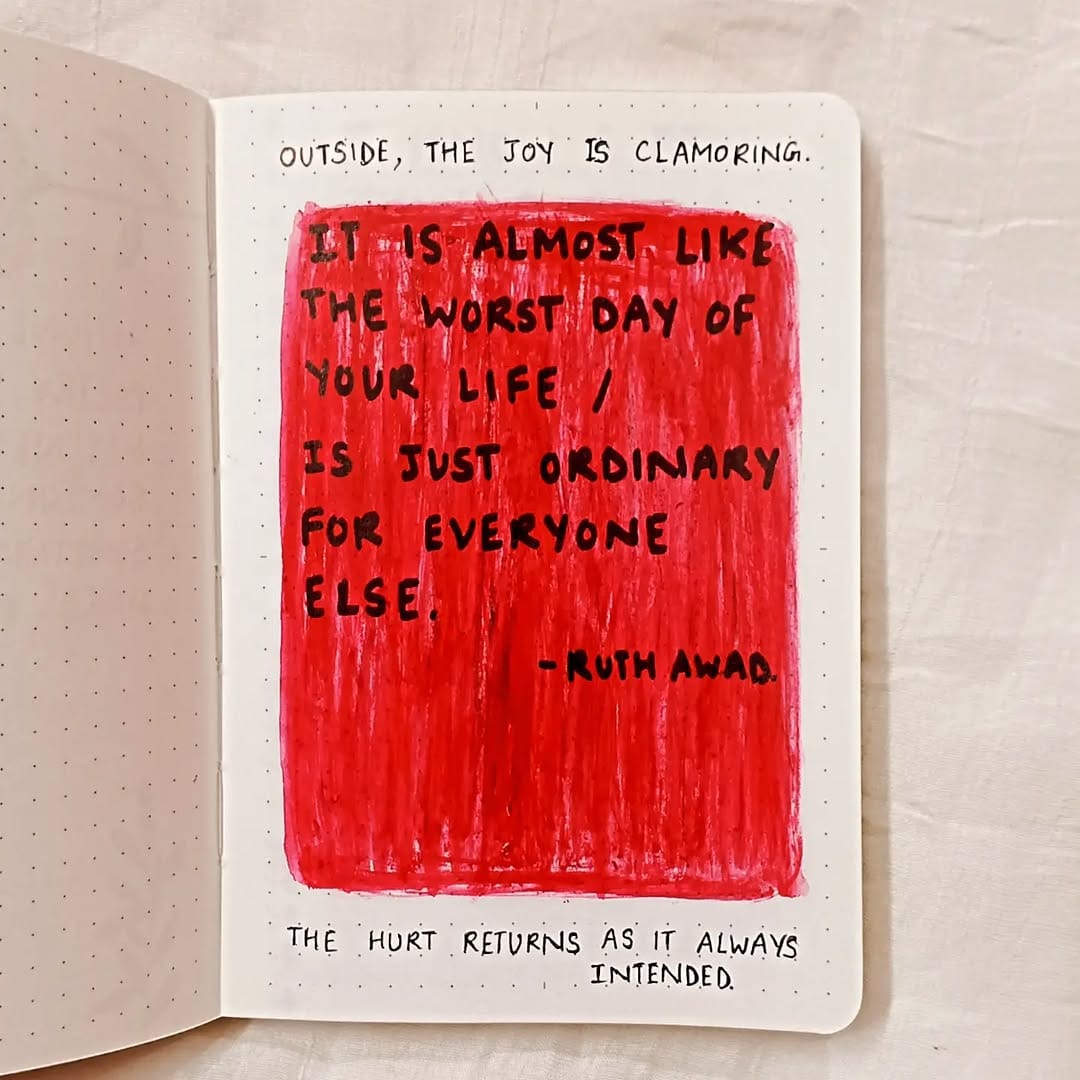 OUTSIDE, THE JOY IS CLAMORING.
IT IS ALMOST LIKE
THE WORST DAY OF
YOUR LIFE /
IS JUST ORDINARY
FOR EVERYONE
ELSE.
-RUTH AWAD.
THE HURT RETURNS AS IT ALWAYS
INTENDED.